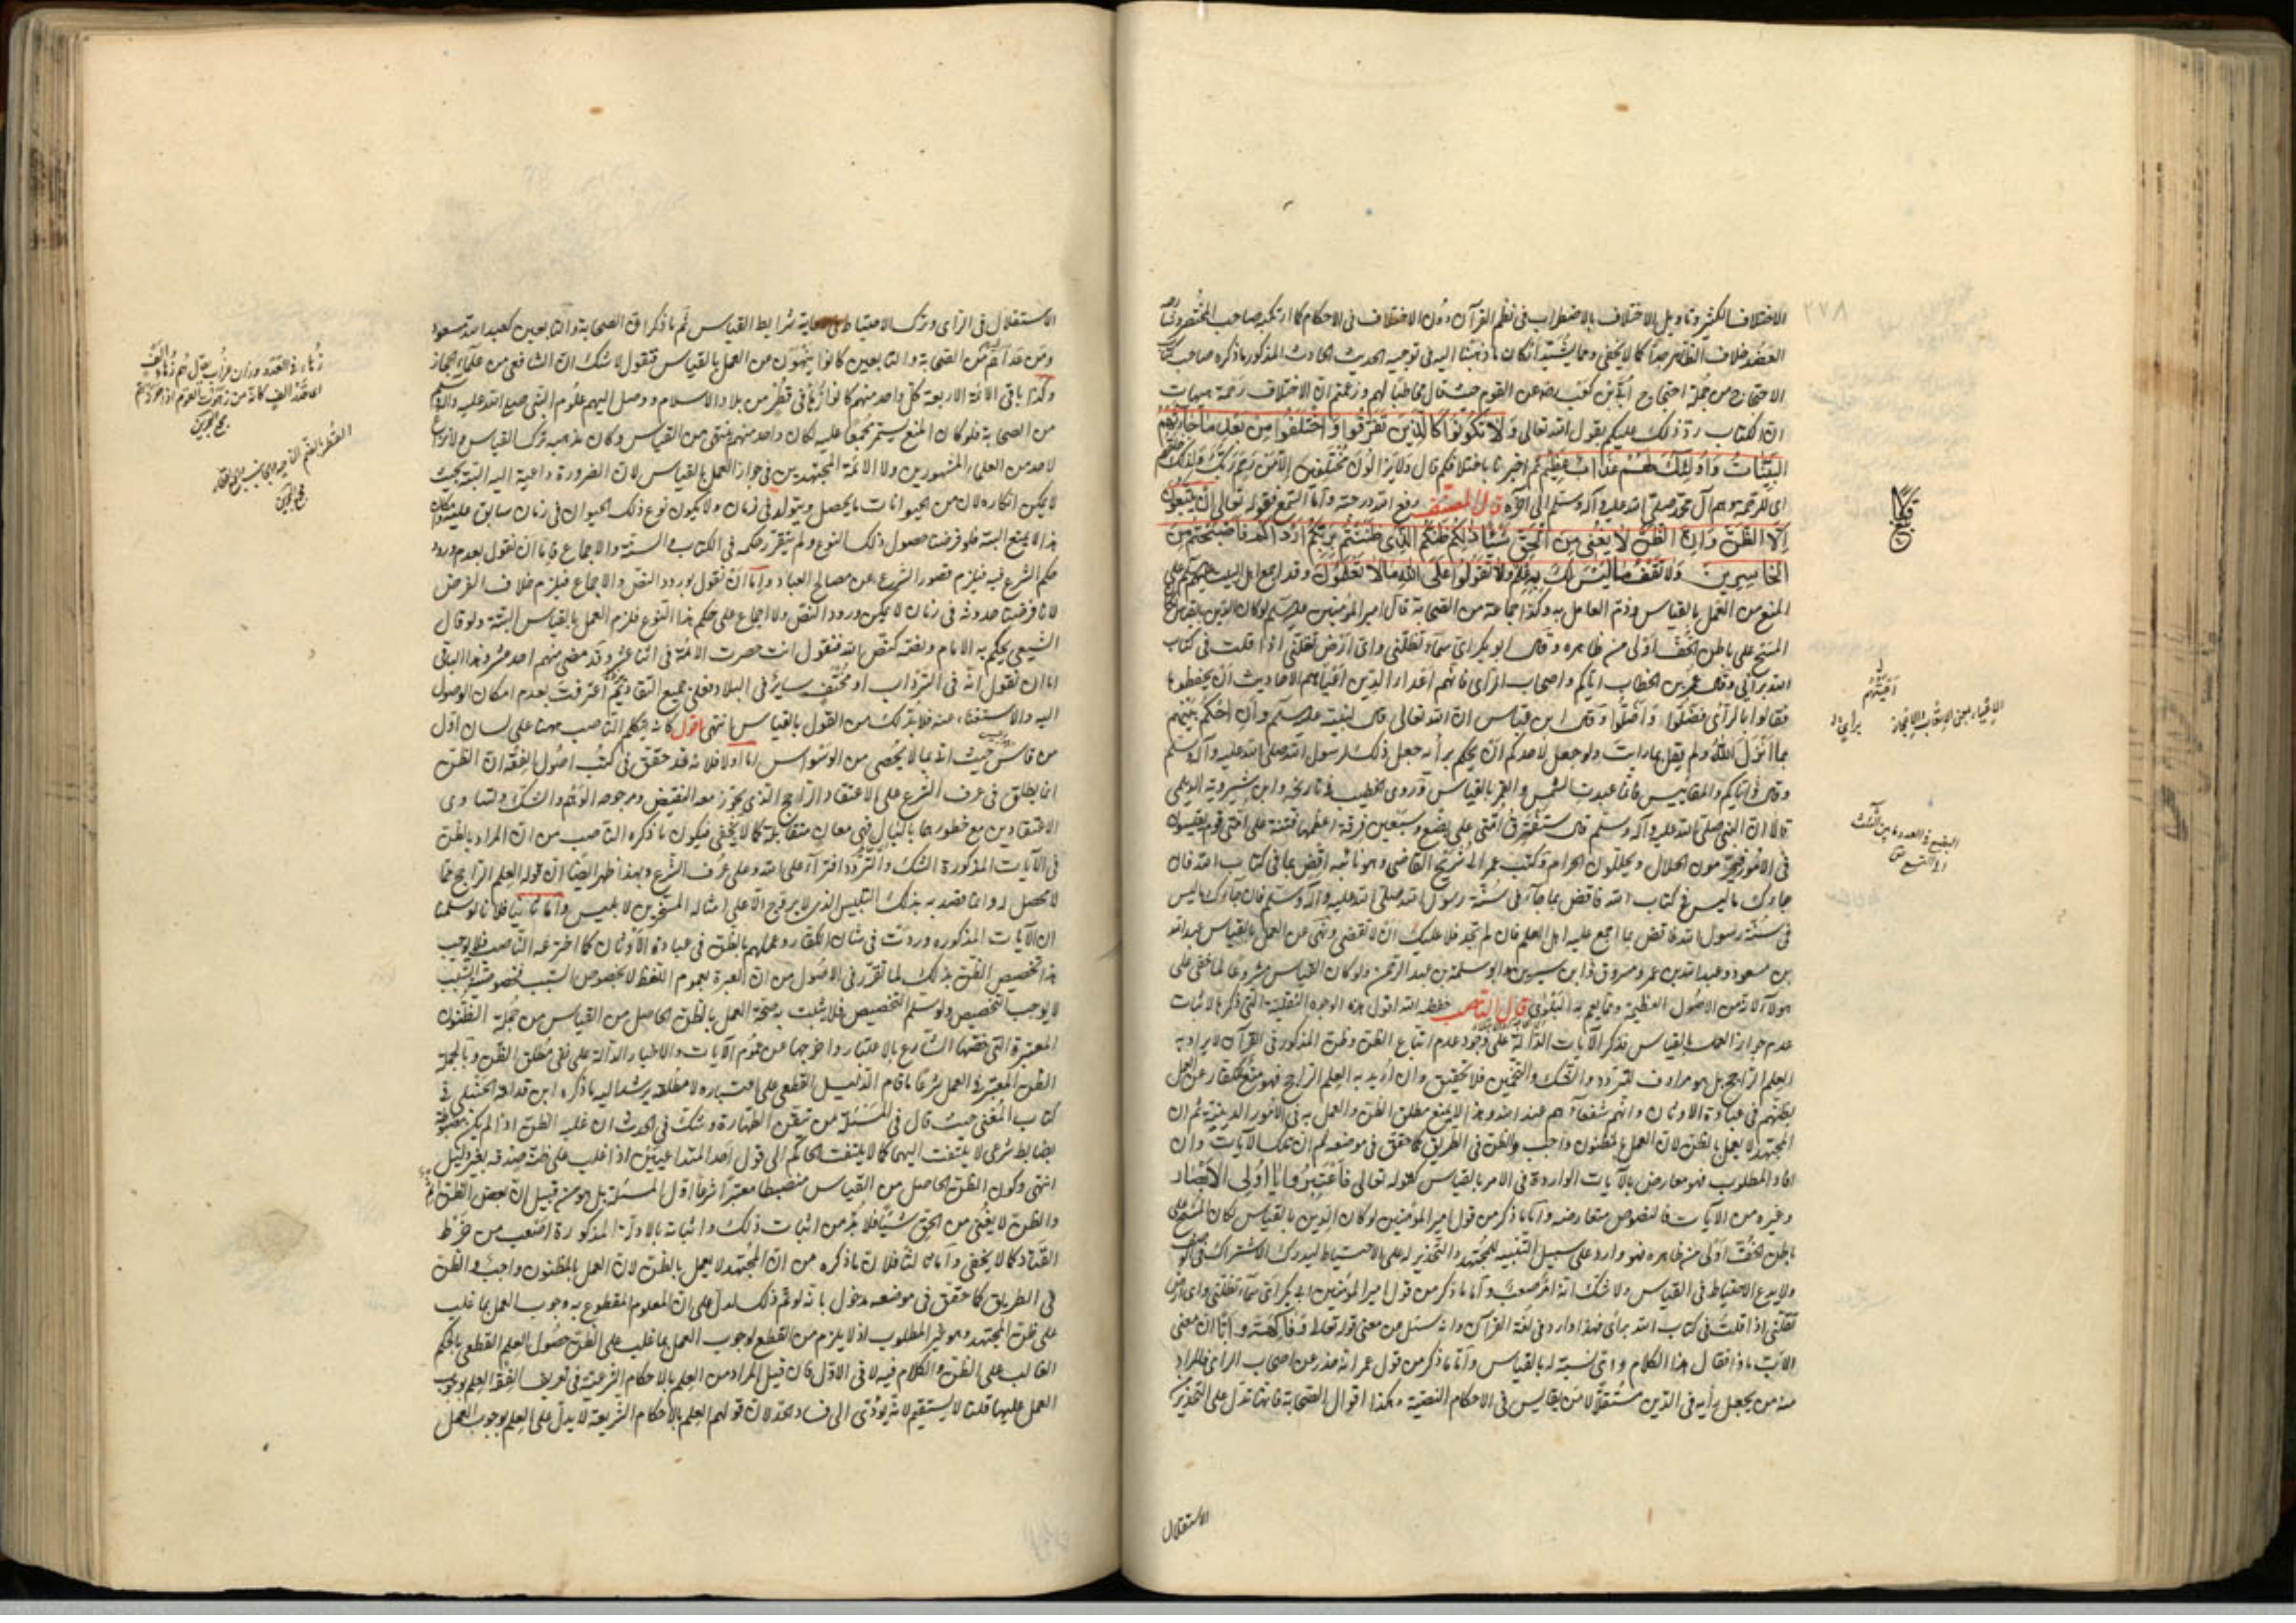 ٢٧٨
الاختلاف الكثير وتاويل الاختلاف بالاضطراب في نظم القرآن دون الاختلاف في الاحكام كما ارتكبه صاحب المختصر
العضد خلاف الظاهر جدا كما لا يخفى ومما يشيد اركان ما ذهبنا اليه في توجيه الحديث الحادث المذكور ما ذكره صاحب كتاب
الاحتجاج من جملة احتجاج ابي بن كعب رضي عن القوم حيث قال مخاطبا لهم وزعمتم ان الاختلاف رحمة هيهات
ان الكتاب رد ذلك عليكم يقول الله تعالى ولا تكونوا كالذين تفرقوا واختلفوا من بعد ما جاءهم
البينات واولئك لهم عذاب عظيم ثم اخبرنا باختلافكم قال ولا يزالون مختلفين الا من رحم ربك ولذلك خلقهم
اي للرحمة وهم آل محمد صلى الله عليه وآله وسلم الى آخره قال المصنف رفع الله درجته واما السمع فقوله تعالى ان يتبعون
الا الظن وان الظن لا يغني من الحق شيئا ذلكم ظنكم الذي ظننتم بربكم ارداكم فاصبحتم من
الخاسرين ولا تقف ما ليس لك به علم ولا تقولوا على الله ما لا تعلمون وقد اجمع اهل البيت عليهم على
المنع من العمل بالقياس وذم العامل به وكذا جماعة من الصحابة قال امير المؤمنين عليه السلم لو كان الدين بالقياس لكان
المسح على باطن الخف اولى من ظاهره وقال ابو بكر اي سماء تظلني واي ارض تقلني اذا قلت في كتاب
الله برأيي وقال عمر بن الخطاب اياكم واصحاب الرأي فانهم اعداء الدين اعيتهم الاحاديث ان يحفظوها
فقالوا بالرأي فضلوا واضلوا وقال ابن عباس ان الله تعالى قال لنبيه عليه السلم وان احكم بينهم
بما انزل الله ولم يقل بما رايت ولو جعل لاحدكم ان يحكم برأيه جعل ذلك لرسول الله صلى الله عليه وآله وسلم
وقال اياكم والمقاييس فانما عبدت الشمس والقمر بالقياس وروى الخطيب في تاريخه وابن شيرويه الديلمي
قالا ان النبي صلى الله عليه وآله وسلم قال ستفترق امتي على بضع وسبعين فرقة اعظمها فتنة على امتي قوم يقيسون
في الامور فيحرمون الحلال ويحللون الحرام وكتب عمر الى شريح القاضي وهو نائبه اقض بما في كتاب الله فان
جاءك ما ليس في كتاب الله فاقض بما جاء في سنة رسول الله صلى الله عليه وآله وسلم فان جاءك ما ليس
في سنة رسول الله فاقض بما اجمع عليه اهل العلم فان لم تجد فلا عليك ان لا تقضي ونهى عن العمل بالقياس عبد الله
بن مسعود وعبد الله بن عمر ومسروق وابن سيرين وابو سلمة بن عبد الرحمن ولو كان القياس مشروعا لما خفي على
هؤلاء لانه من الاصول العظيمة ومما يعم به البلوى قال الناصب خفضه الله اقول هذه الوجوه النقلية التي ذكرها لاثبات
عدم جواز العمل بالقياس فذكر الآيات الدالة على وجود عدم اتباع الظن وظن المذكور في القرآن لا يراد به
العلم الراجح بل هو مرادف للتردد والشك والتخمين فلا تحقيق وان اريد به العلم الراجح فهو منع للكفار عن العمل
بظنهم في عبادة الاوثان وانهم شفعاؤهم عند الله وهذا لا يمنع مطلق الظن والعمل به في الامور الدينية ثم ان
المجتهد لا يعمل بالظن لان العمل بالمظنون واجب والظن في الطريق كما حقق في موضعه ثم ان تلك الآيات وان
افاد المطلوب فهو معارض بالآيات الواردة في الامر بالقياس كقوله تعالى فاعتبروا يا اولي الابصار
وغيره من الآيات فالنصوص متعارضة واما ما ذكر من قول امير المؤمنين لو كان الدين بالقياس لكان المسح على
باطن الخف اولى من ظاهره فهو وارد على سبيل التنبيه للمجتهد والتحذير له على الاحتياط ليدرك الاشتراك
ولا يدع الاحتياط في القياس ولا شك انه امر صعب واما ما ذكر من قول امير المؤمنين ابي بكر اي سماء تظلني واي ارض
تقلني اذا قلت في كتاب الله برأي فهذا وارد في لغة القرآن وانه سئل من معنى قوله تعالى وفاكهة وابا ان معنى
الاب ماذا فقال هذا الكلام واي نسبة له بالقياس واما ما ذكر من قول عمر انه حذر عن اصحاب الرأي فالمراد
منه من يجعل رأيه في الدين مستقلا من يقايس في الاحكام النصية وهكذا اقوال الصحابة فانها تدل على التحذير
الاستقلال
اعيتهم
الاستقلال في الرأي وترك الاحتياط في رعاية شرايط القياس ثم ما ذكر ان الصحابة والتابعين كعبد الله مسعود
ومن عداهم من الصحابة والتابعين كانوا ينهون من العمل بالقياس فنقول لا شك ان الشافعي من علماء الحجاز
وكذا باقي الائمة الاربعة كل واحد منهم كانوا في قطر من بلاد الاسلام ووصل اليهم علوم النبي صلى الله عليه وآله وسلم
من الصحابة فلو كان المنع يستمر مجمعا عليه لكان واحد منهم منتهى من القياس وكان مذهبه ترك القياس ولا نزاع
لاحد من العلماء المشهورين ولا الائمة المجتهدين في جواز العمل بالقياس لان الضرورة داعية اليه البتة بحيث
لا يمكن انكاره لان من الحيوانات ما يحصل ويتولد في زمان ولا يكون نوع ذلك الحيوان في زمان سابق عليه وامكان
هذا لا يمنع البتة فلو فرضنا حصول ذلك النوع ولم يتقرر حكمه في الكتاب والسنة والاجماع فاما ان نقول بعدم ورود
حكم الشرع فيه فيلزم قصور الشرع عن مصالح العباد واما ان نقول بورود النص والاجماع فيلزم خلاف الفرض
لانا فرضنا حدوثه في زمان لا يمكن ورود النص ولا اجماع على حكم هذا النوع فلزم العمل بالقياس البتة ولو قال
الشيعي يحكم به الامام ونصه كنص الله فنقول انت حصرت الائمة في اثنا عشر وقد مضى منهم احد عشر وهذا الباقي
اما ان تقول انه في السرداب او مختف سائر في البلاد فعلى جميع التقادير اعترفت بعدم امكان الوصول
اليه والاستفتاء عنه فلا بد لك من القول بالقياس انتهى اقول كانه تكلم الناصب ههنا على لسان اول
من قاس حيث اتى بما لا يحصى من الوسواس اما اولا فلانه قد حقق في كتب اصول الفقه ان الظن
انما يطلق في عرف الشرع على الاعتقاد الراجح الذي يجوز معه النقيض ومرجوحه الوهم والشك ولتساوي
الاعتقادين مع خطورهما بالبال فهي معان متقابلة كما لا يخفى فيكون ما ذكره الناصب من ان المراد بالظن
في الآيات المذكورة الشك والتردد افتراء على الله وعلى عرف الشرع وبهذا ظهر ايضا ان قوله العلم الراجح مما
لا محصل له وانما قصد به بذلك التلبيس الذي لا يروج الا على امثاله المسخرين لابليس واما ثانيا فلانا لو سلمنا
ان الآيات المذكورة وردت في شان الكفار وعملهم بالظن في عبادة الاوثان كما اخترعه الناصب فلا يوجب
هذا تخصيص الظن بذلك لما تقرر في الاصول من ان العبرة بعموم اللفظ لا بخصوص السبب فخصوصية السبب
لا يوجب التخصيص ولو سلم التخصيص فلا يثبت به صحة العمل بالظن الحاصل من القياس من جملة الظنون
المعتبرة التي خصها الشارع بالاعتبار واخرجها عن عموم الآيات والاخبار الدالة على نفي مطلق الظن وبالجملة
الظن المعتبرة العمل شرعا ما قام الدليل القطعي على اعتباره لا مطلقه يرشد اليه ما ذكره ابن قدامة الحنبلي في
كتاب المغني حيث قال في المسئلة من تيقن الطهارة وشك في الحدث ان غلبة الظن اذا لم يكن مضبوطة
بضابط شرعي لا يلتفت اليها كما لا يلتفت الحاكم الى قول احد المتداعيين اذا غلب على ظنه صدقه بغير دليل
انتهى وكون الظن الحاصل من القياس منضبطا معتبرا شرعا اول المسئلة بل هو من قبيل ان بعض الظن اثم
والظن لا يغني من الحق شيئا فلا بد من اثبات ذلك واثباته بالادلة المذكورة اصعب من خرط
القتاد كما لا يخفى واما ثالثا فلان ما ذكره من ان المجتهد لا يعمل بالظن لان العمل بالمظنون واجب والظن
في الطريق كما حقق في موضعه مدخول بانه لو تم ذلك لدل على ان المعلوم المقطوع به وجوب العمل بما غلب
على ظن المجتهد وهو غير المطلوب اذ لا يلزم من القطع لوجوب العمل بما غلب على الظن حصول العلم القطعي بالحكم
الغالب على الظن والكلام فيه لا في الاول فان قيل المراد من العلم بالاحكام الشرعية في تعريف الفقه العلم بوجوب
العمل عليها قلنا لا يستقيم لانه يؤدي الى فساد الحد لان قولهم العلم بالاحكام الشريعة لا يدل على العلم بوجوب العمل
مجمع البحرين
مجمع البحرين